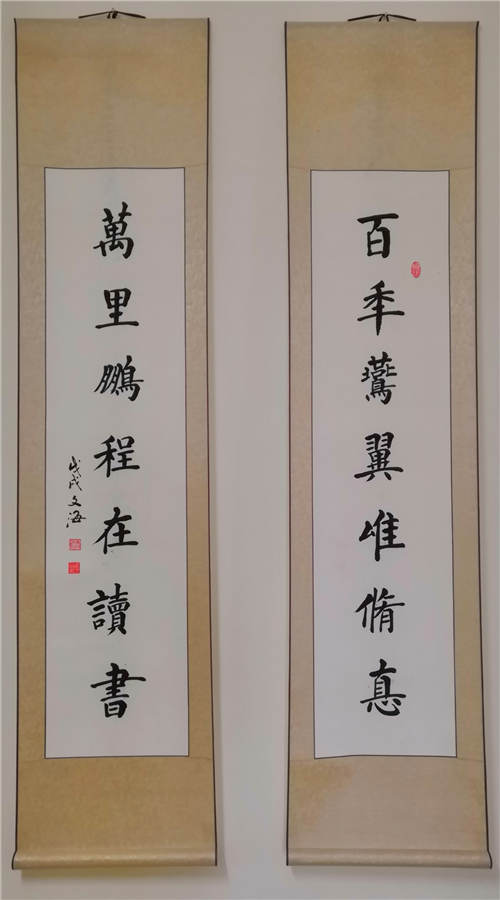 百秊鷰翼惟脩悳
萬里鵬程在讀書
戊戌文海